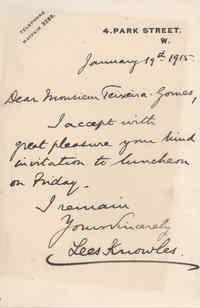 TELEPHONE
MAYFAIR 3285.
4, PARK STREET.
W.
January 19th 1915
Dear Monsieur Teixeira-Gomes,
I accept with
great pleasure your kind
invitation to luncheon
on Friday.
I remain
Yours sincerely
Lees Knowles.